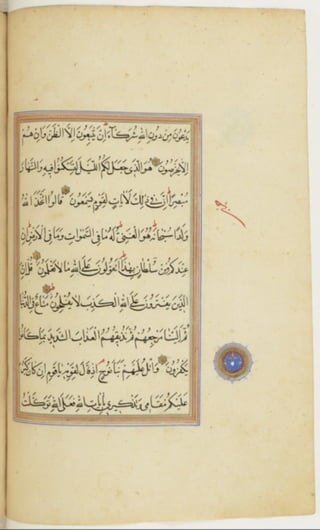 يدعون من دون الله شركاء ان يتبعون الا الظن وان هم
الا يخرصون هو الذى جعل لكم الليل لتسكنوا فيه والنهار
مبصرا ان فى ذلك لايات لقوم يسمعون قالوا اتخذ الله
ولدا سبحانه هو الغنى له ما فى السموات وما فى الارض ان
عندكم من سلطان بهذا اتقولون على الله ما لا تعلمون قل ان
الذين يفترون على الله الكذب لا يفلحون متاع فى الدنيا
ثم الينا مرجعهم ثم نذيقهم العذاب الشديد بما كانوا
يكفرون واتل عليهم نبا نوح اذ قال لقومه يا قوم ان كان كبر
عليكم مقامى وتذكيرى بايات الله فعلى الله توكلت